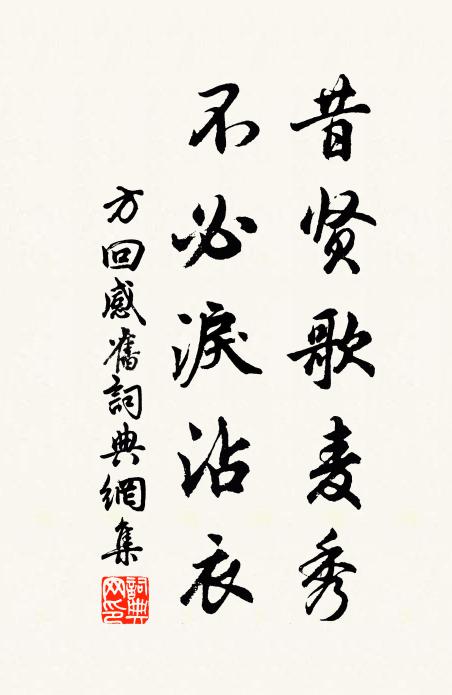 昔贤歌麦秀
不必淚沾衣
方回感舊詞典網集
詞典网印